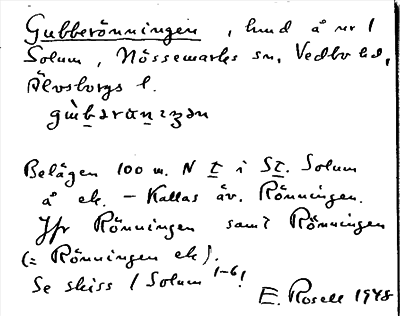 Gubberönningen, hmd å nr 1
Solum, Nössemarks sn, Vedbo hd,
Älvsborgs l.
Belägen 100 m. N t i St. Solum
å ek. – Kallas äv. Rönningen.
Jfr Rönningen samt Rönningen
(= Rönningen ek).
Se skiss / Solum 1-6!
E. Rosell 1948